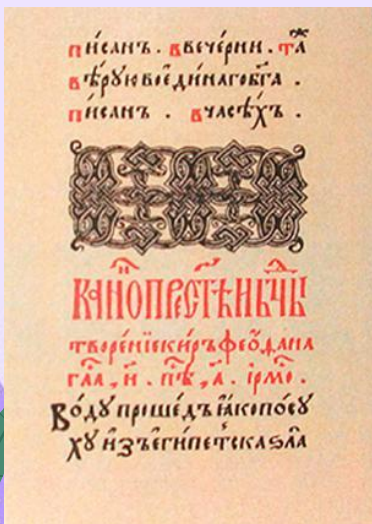 пи́санъ . ввече́рни . та̑
вѣ́рꙋю воеди́наго бг҃а .
пи́санъ . вчасѣ́хъ .
Кано́нъ прест҃ѣ́й бц҃ы
творе́нїе ки́ръ ѳео́фана
гла́, и҃ . пѣ́, а҃ . ірмо́ .
Во́дꙋ проше́дъ ꙗ́ко посꙋ́
хꙋ и҆зъ є҆ги́петска ѕла